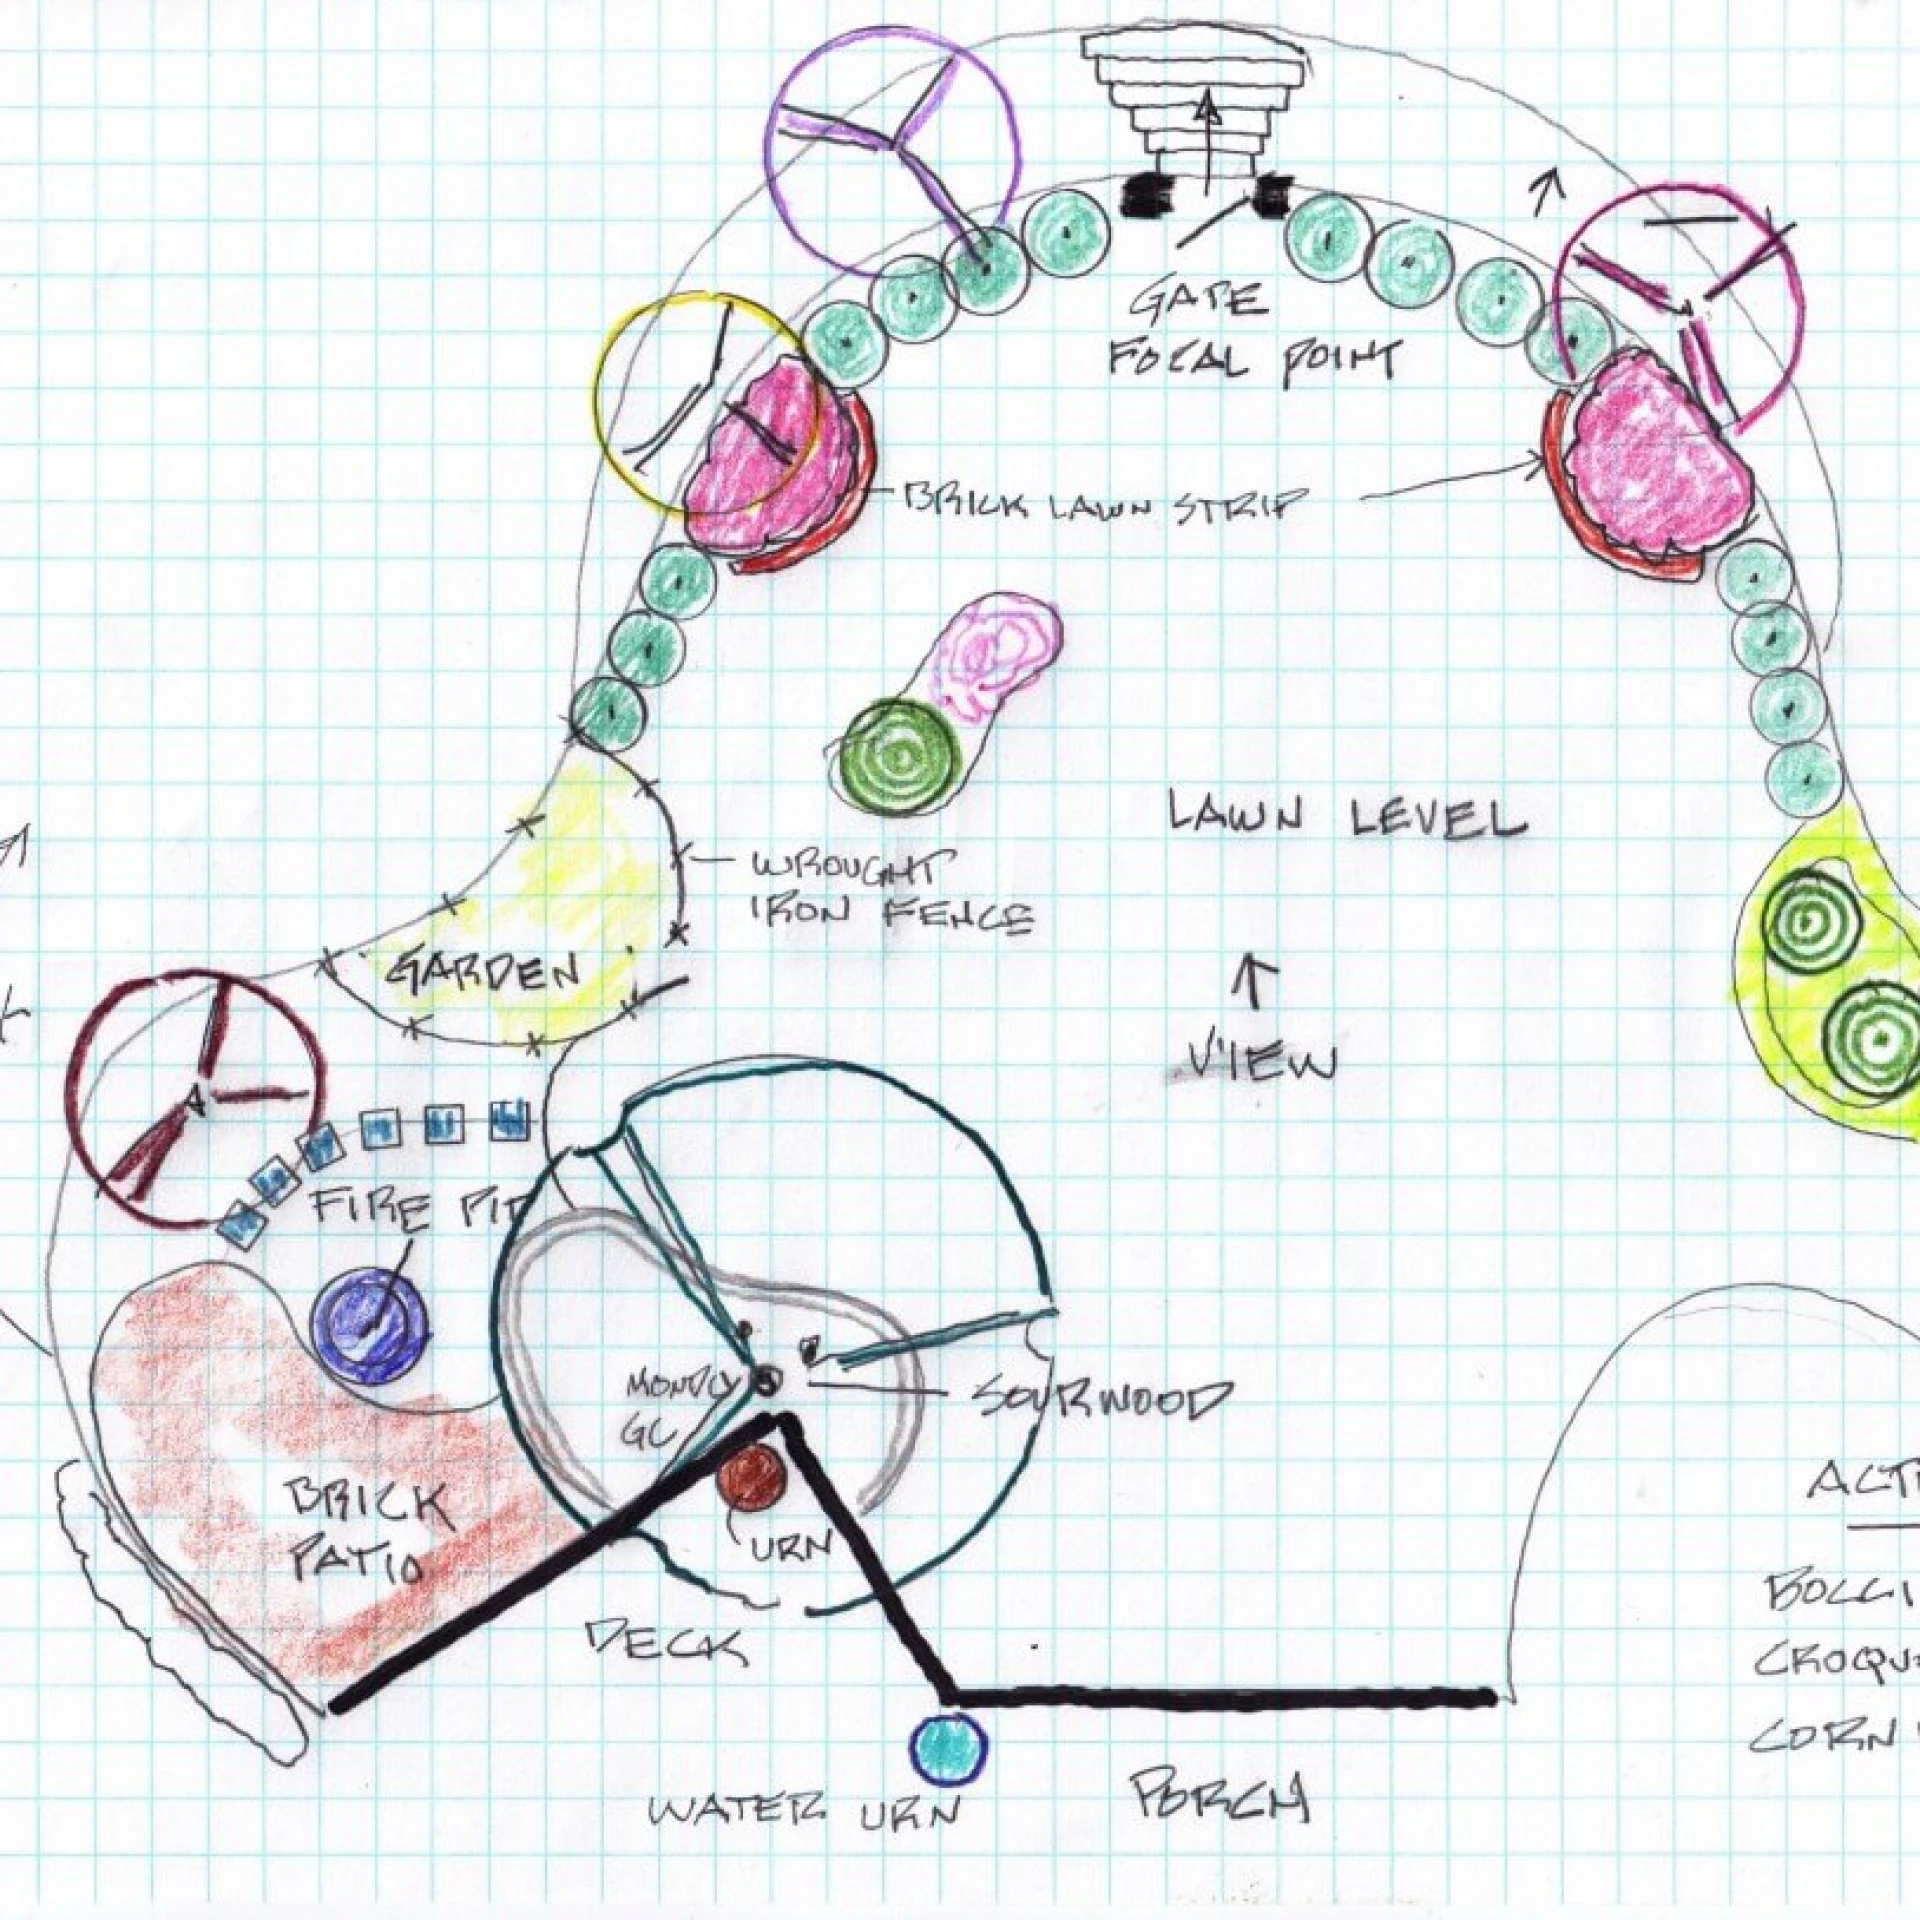 GATE
FOCAL POINT
BRICK LAWN STRIP
LAWN LEVEL
WROUGHT
IRON FENCE
GARDEN
VIEW
FIRE PIT
SOURWOOD
GC
BRICK
PATIO
URN
DECK
WATER URN
PORCH
ACT
BOCCI
CROQU
CORN